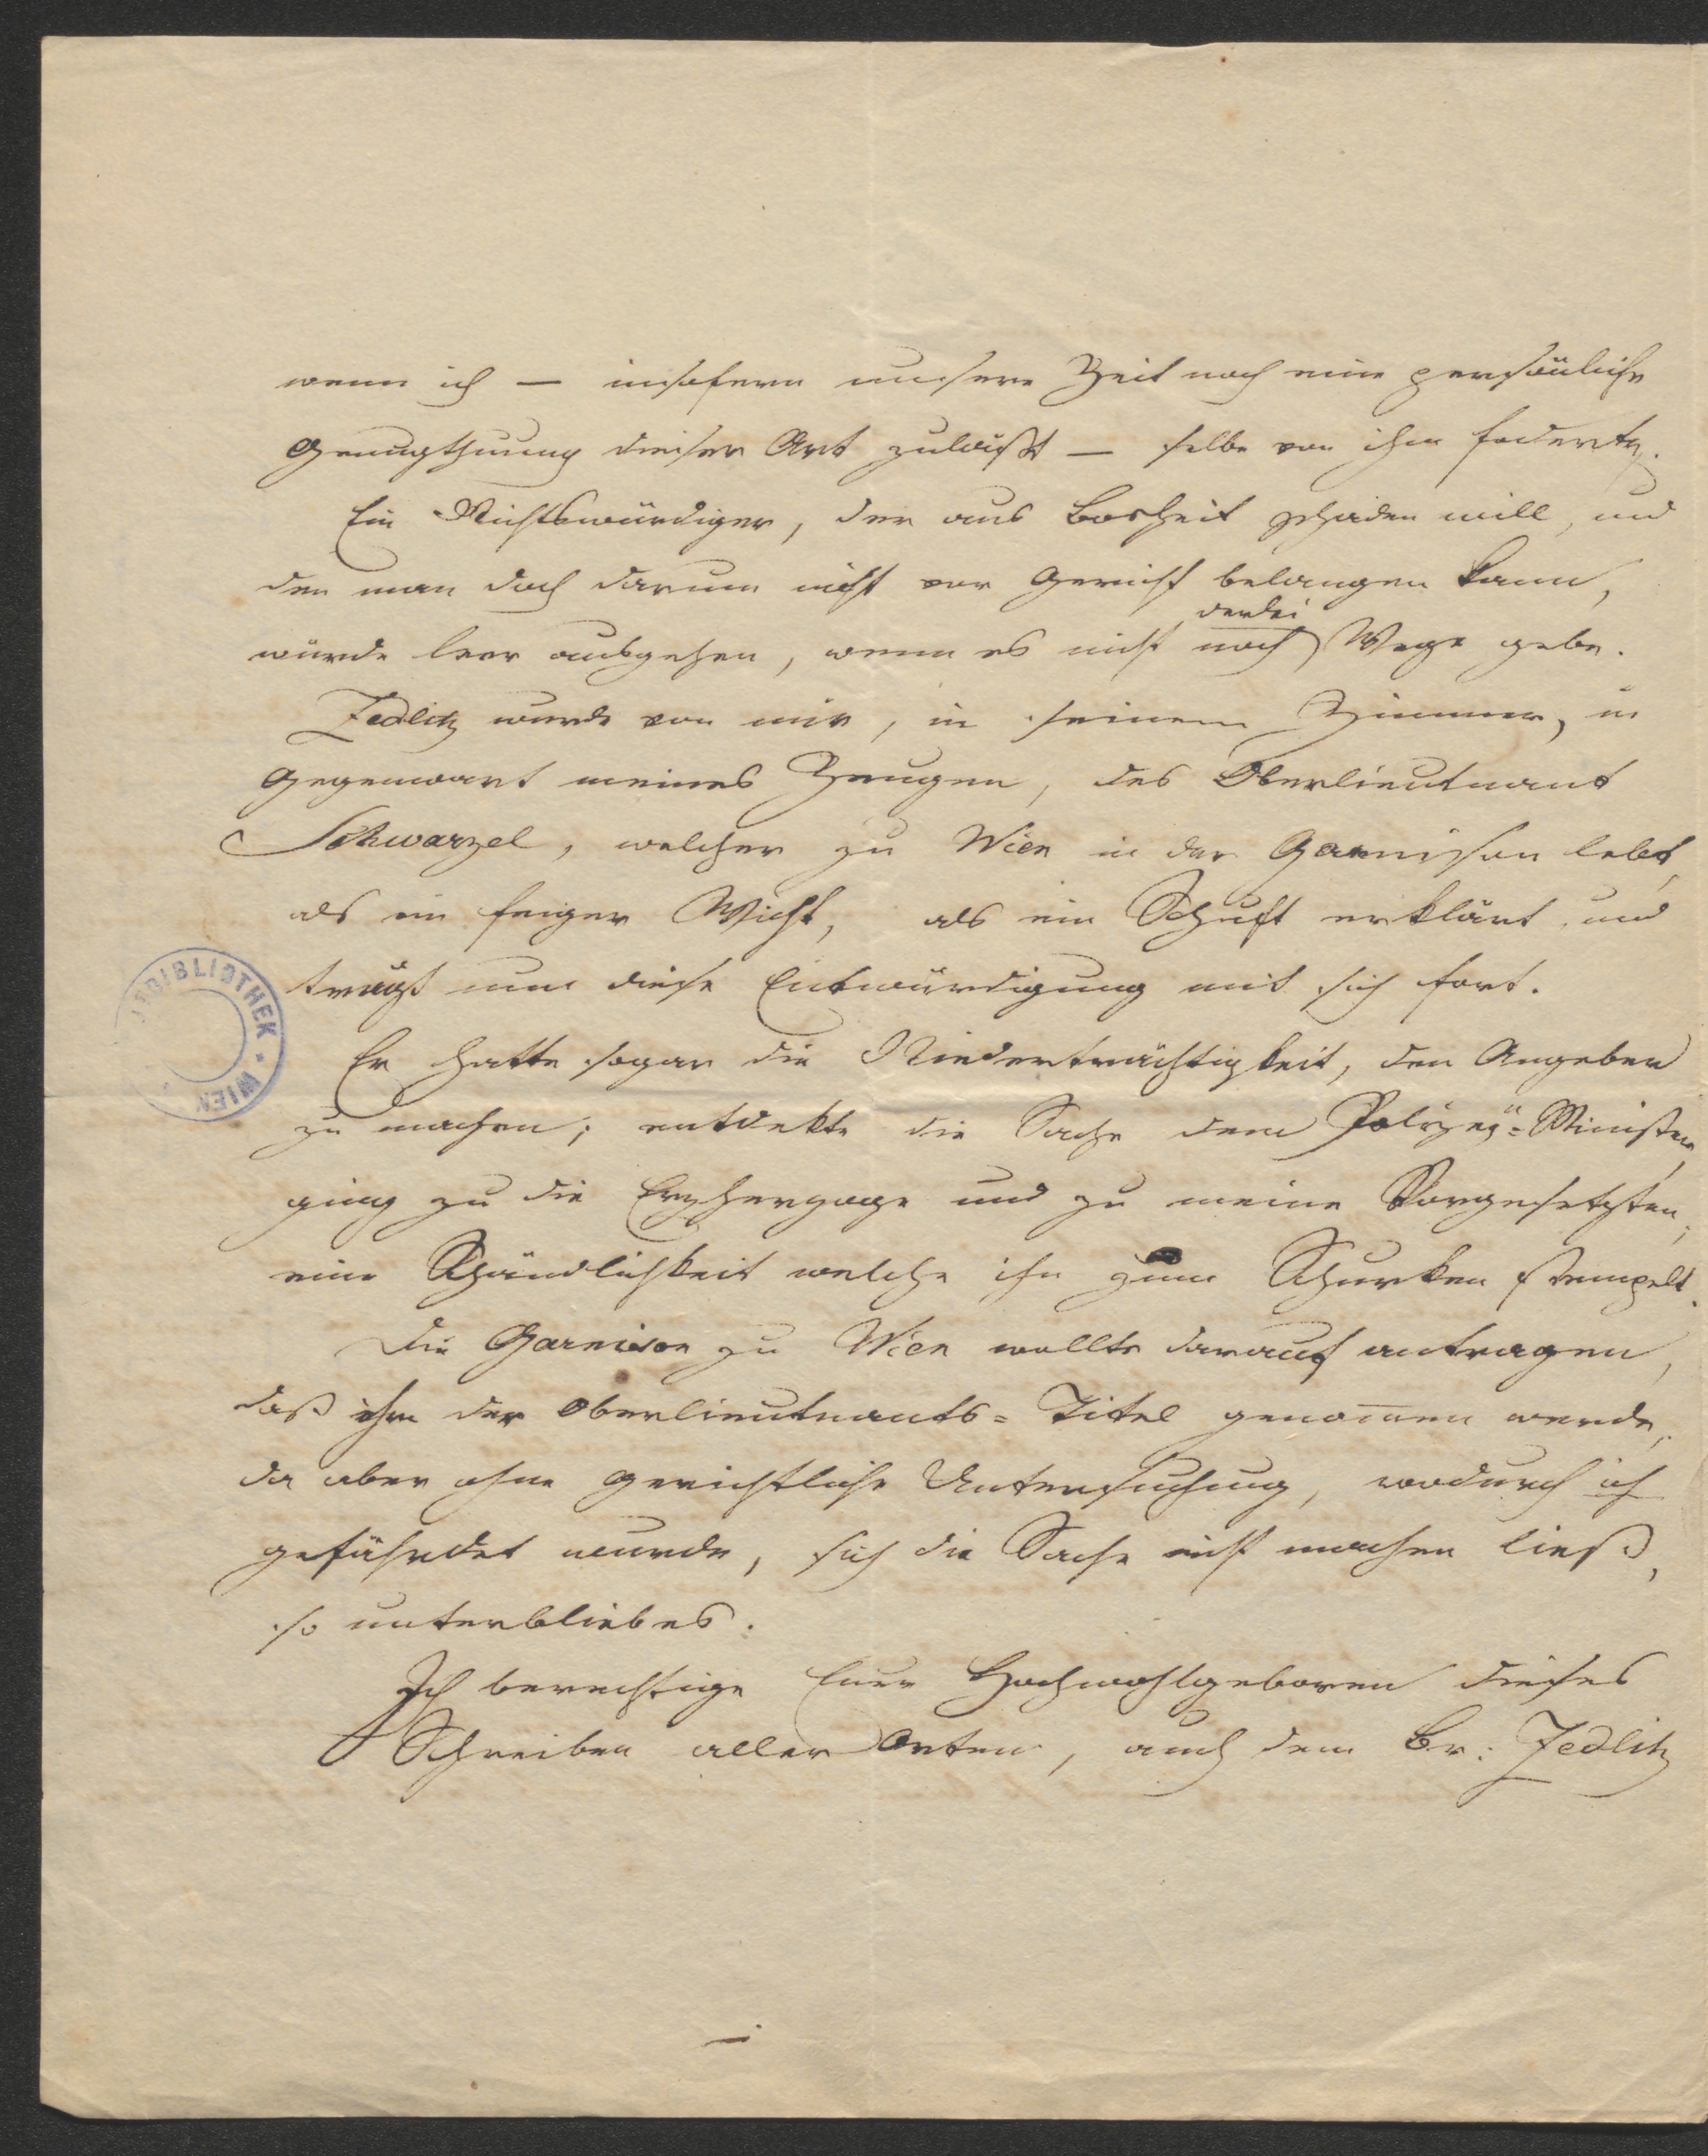 wenn ich — insofern unsere Zeit noch eine persönliche
Genugthuung dieser Art zuläßt — selbe von ihm foderte.
Ein Nichtswürdiger, der aus Bosheit schaden will, und
den man doch darum nicht vor Gericht belangen kann,
derlei
würde leer ausgehen, wenn es nicht noch Wege gebe.
Zedlitz wurde von mir, in seinem Zimmer, in
Gegenwart meines Zeugen, des Oberlieutnant
Schwarzel, welcher zu Wien in der Garnison lebt,
als ein feiger Wicht, als ein Schuft erklärt und
trägt nun diese Entwürdigung mit sich fort.
Er hatte sogar die Niederträchtigkeit, den Angeber
zu machen; entdekte die Sache dem Polizey=Minister,
ging zu die Erzherzoge und zu meine Vorgesetzten,
eine Schändlichkeit welche ihn zum Schurken stempelt.
Die Garnison zu Wien wollte darauf antragen,
daß ihm der Oberlieutnants=Titel genom̅en werde,
da aber ohne gerichtliche Untersuchung, wodurch ich
gefährdet wurde, sich die Sache nicht machen ließ,
so unterblieb es.
Ich berechtige Euer Hochwohlgeboren dieses
Schreiben aller Orten, auch dem Br: Zedlitz
BIBLIOTHEK · WIEN